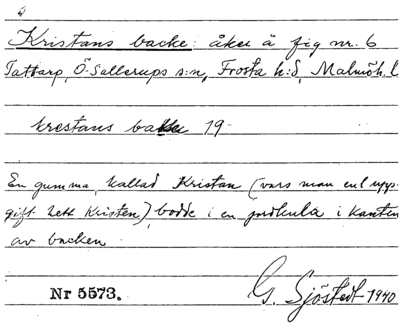 Kristans backe: åker å fig nr. 6
Tattarp, Ö. Sallerups s:n, Frosta h:d, Malmöh. l.
krestans bakke 19
En gumma, kallad Kristan (vars man enl. upp-
gift hett Kristen), bodde i en jordkula i kanten
av backen.
Nr 5573.
G. Sjöstedt 1940